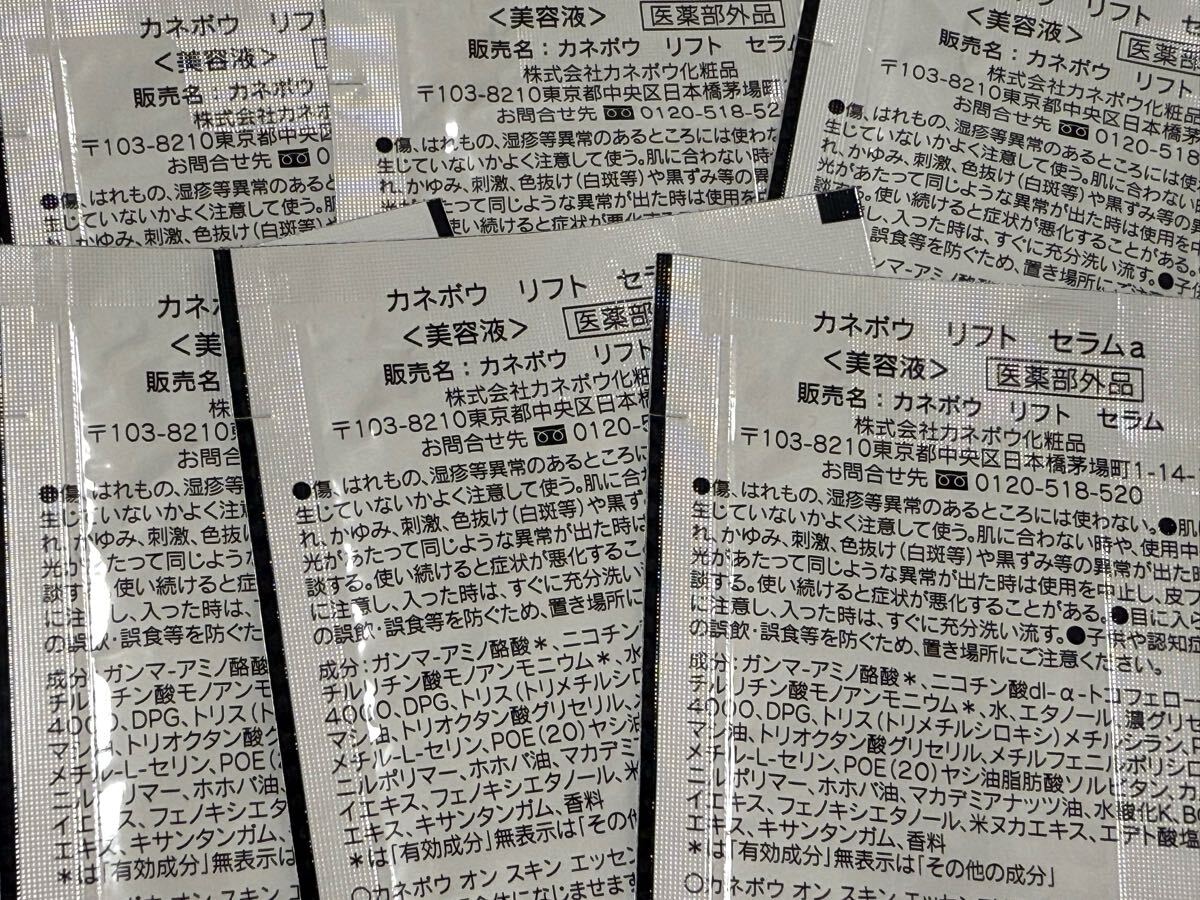 カネボウ リフ
＜美容液＞
販売名：カネボウ
株式会社カネボ
〒103-8210東京都中央区
お問合せ先 0
●傷、はれもの、湿疹等異常のあると
生じていないかよく注意して使う。
かゆみ、刺激、色抜け(白斑等)や
＜美容液＞ 医薬部外品
販売名：カネボウ リフト セラム
株式会社カネボウ化粧品
〒103-8210東京都中央区日本橋茅場町
お問合せ先 0120-518-52
●傷、はれもの、湿疹等異常のあるところには使わな
生じていないかよく注意して使う。肌に合わない時
れ、かゆみ、刺激、色抜け(白斑等)や黒ずみ等の異
光があたって同じような異常が出た時は使用を
使い続けると症状が悪化する
＜美容液＞ 医薬部
販売名：カネボウ リフト
株式会社カネボウ化粧品
〒103-8210東京都中央区日本橋茅
お問合せ先 0120-518
●傷、はれもの、湿疹等異常のあるところには使
生じていないかよく注意して使う。肌に合わない
れ、かゆみ、刺激、色抜け(白斑等)や黒ずみ等の
光があたって同じような異常が出た時は使用を中
談する。使い続けると症状が悪化することがある。
入った時は、すぐに充分洗い流す。●子供
誤食等を防ぐため、置き場所にご注
カネボ
＜美
販売名
株
〒103-8210
お問合
●傷、はれもの、湿疹等
生じていないかよく注
れ、かゆみ、刺激、色
光があたって同じような
談する。使い続けると症
に注意し、入った時は、
の誤飲・誤食等を防ぐた
成分：ガンマ-アミノ酪酸
チルリチン酸モノアンモ
4000、DPG、トリス(ト
マシ油、トリオクタン酸グ
メチル-L-セリン、POE(2
ニルポリマー、ホホバ油、
イエキス、フェノキシエタ
エキス、キサンタンガム、
＊は「有効成分」無表示
ボウ オン スキン エッ
カネボウ リフト セラ
＜美容液＞ 医薬部
販売名：カネボウ リフト
株式会社カネボウ化粧
〒103-8210東京都中央区日本橋
お問合せ先 0120-5
●傷、はれもの、湿疹等異常のあるところに
生じていないかよく注意して使う。肌に合
れ、かゆみ、刺激、色抜け(白斑等)や黒ず
光があたって同じような異常が出た時は
談する。使い続けると症状が悪化するこ
に注意し、入った時は、すぐに充分洗い
の誤飲・誤食等を防ぐため、置き場所に
成分：ガンマ-アミノ酪酸＊、ニコチン
チルリチン酸モノアンモニウム＊、水
4000、DPG、トリス(トリメチルシロ
マシ油、トリオクタン酸グリセリル、メ
メチル-L-セリン、POE(20)ヤシ油
ニルポリマー、ホホバ油、マカデミ
イエキス、フェノキシエタノール、米
エキス、キサンタンガム、香料
＊は「有効成分」無表示は「その他
○カネボウ オン スキン エッセン
カネボウ リフト セラムa
＜美容液＞ 医薬部外品
販売名：カネボウ リフト セラム
株式会社カネボウ化粧品
〒103-8210東京都中央区日本橋茅場町1-14-
お問合せ先 0120-518-520
●傷、はれもの、湿疹等異常のあるところには使わない。●肌
生じていないかよく注意して使う。肌に合わない時や、使用中
れ、かゆみ、刺激、色抜け(白斑等)や黒ずみ等の異常が出た時
光があたって同じような異常が出た時は使用を中止し、皮フ
談する。使い続けると症状が悪化することがある。●目に入ら
に注意し、入った時は、すぐに充分洗い流す。●子供や認知症
の誤飲・誤食等を防ぐため、置き場所にご注意ください。
成分：ガンマ-アミノ酪酸＊、ニコチン酸dl-α-トコフェロー
チルリチン酸モノアンモニウム＊、水、エタノール、濃グリセ
4000、DPG、トリス(トリメチルシロキシ)メチルシラン、
マシ油、トリオクタン酸グリセリル、メチルフェニルポリシロ
メチル-L-セリン、POE(20)ヤシ油脂肪酸ソルビタン、カ
ニルポリマー、ホホバ油、マカデミアナッツ油、水酸化K、
イエキス、フェノキシエタノール、米ヌカエキス、エデト酸塩
エキス、キサンタンガム、香料
＊は「有効成分」無表示は「その他の成分」
○カネボウ オン スキン エッセン